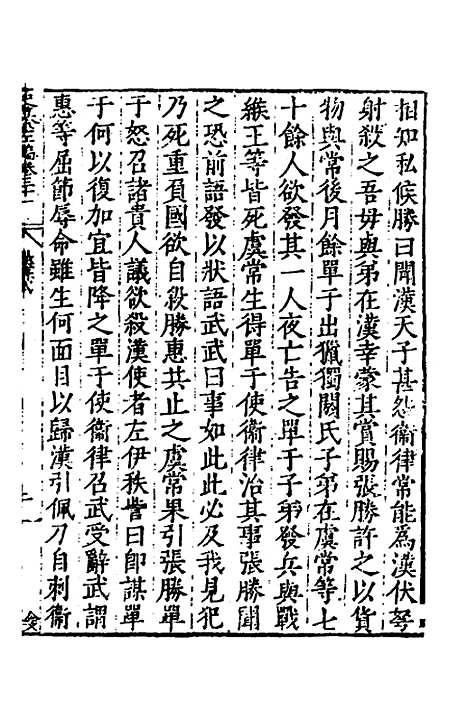 相知私候勝曰聞漢天子甚怨衞律常能爲漢伏弩
射殺之吾毋與弟在漢幸蒙其賞賜張勝許之以貨
物與常後月餘單于出獵獨閼氏子弟在虞常等七
十餘人欲發其一人夜亡告之單于子弟發兵與戰
緱王等皆死虞常生得單于使衞律治其事張勝聞
之恐前語發以狀語武武曰事如此此必及我見犯
乃死重負國欲自殺勝惠共止之虞常果引張勝單
于怒召諸貴人議欲殺漢使者左伊秩訾曰卽謀單
于何以復加宜皆降之單于使衞律召武受辭武謂
惠等屈節辱命雖生何面目以歸漢引佩刀自刺衞